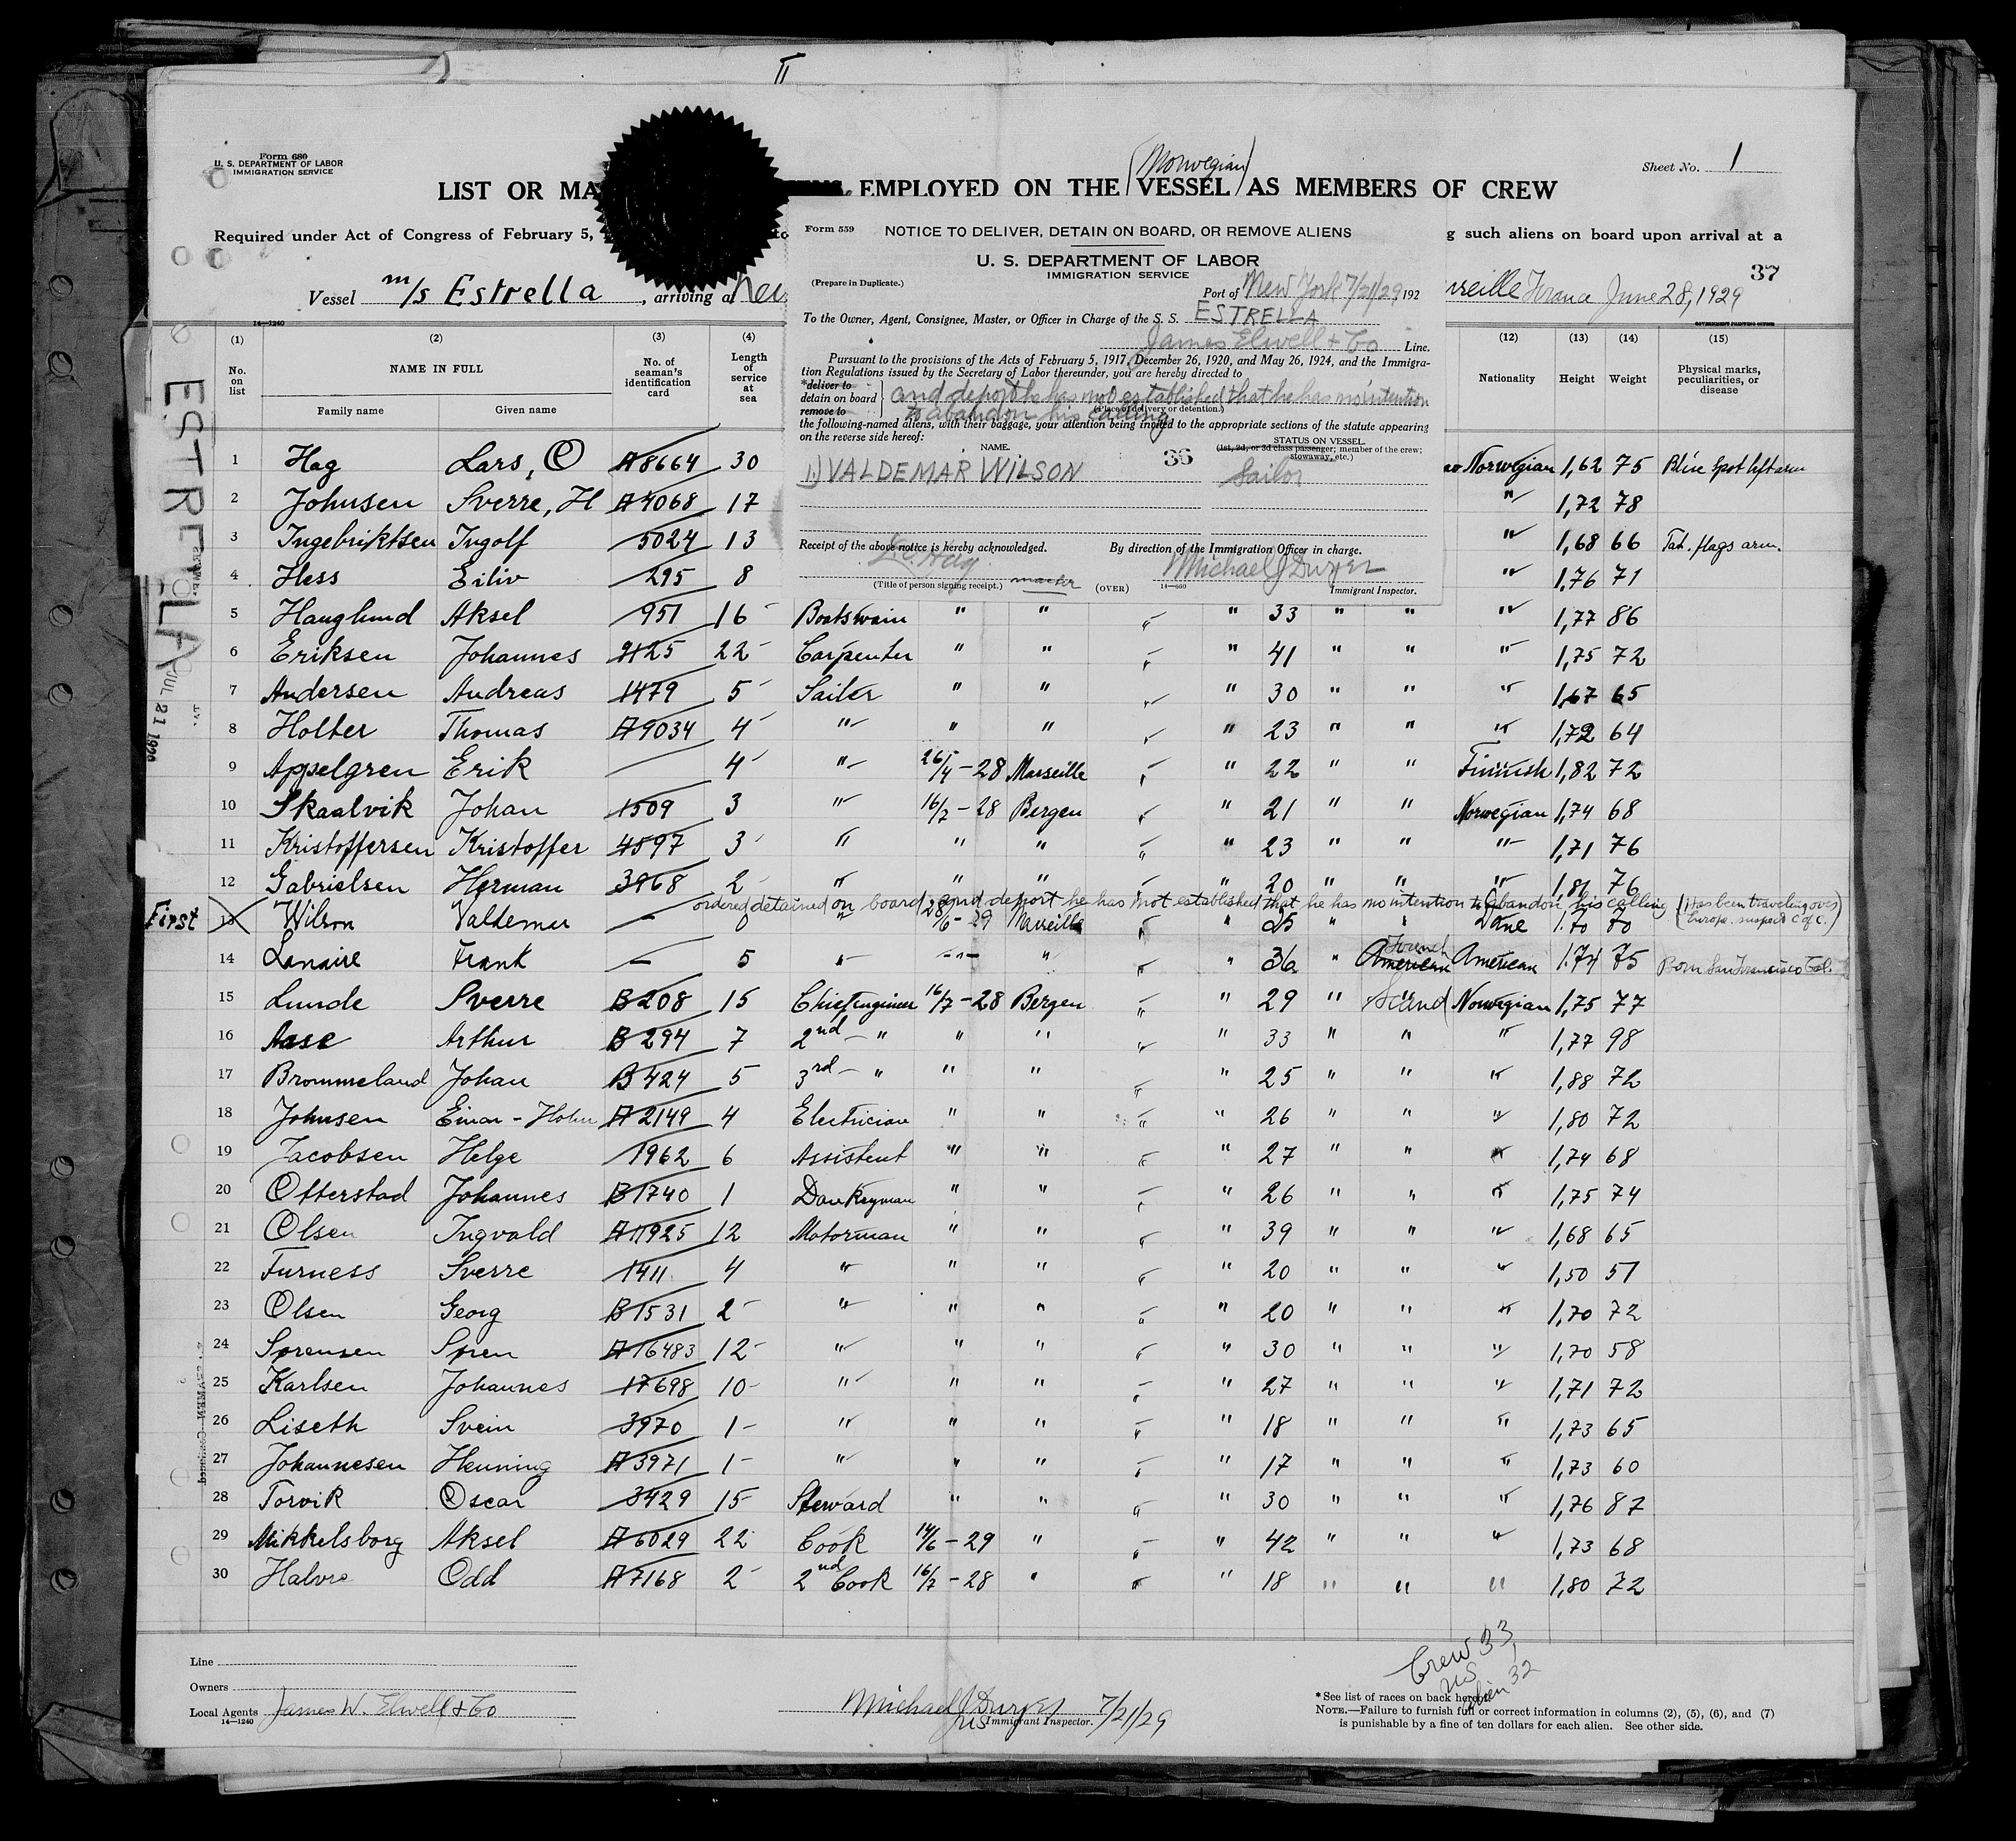 II
Form 680
U. S. DEPARTMENT OF LABOR
IMMIGRATION SERVICE
Sheet No. 1
(Norwegian)
LIST OR MA EMPLOYED ON THE VESSEL AS MEMBERS OF CREW
Required under Act of Congress of February 5, to g such aliens on board upon arrival at a
37
Vessel m/s Estrella, arriving a New rseille France June 28, 1929
14—1240
GOVERNMENT PRINTING OFFICE
Form 559
NOTICE TO DELIVER, DETAIN ON BOARD, OR REMOVE ALIENS
U. S. DEPARTMENT OF LABOR
IMMIGRATION SERVICE
(Prepare in Duplicate.)
Port of New York 7/21/29, 192
To the Owner, Agent, Consignee, Master, or Officer in Charge of the S. S. ESTRELLA
James Elwell & Co Line.
Pursuant to the provisions of the Acts of February 5, 1917, December 26, 1920, and May 26, 1924, and the Immigra-
tion Regulations issued by the Secretary of Labor thereunder, you are hereby directed to
*deliver to
detain on board
remove to
and deport he has not established that he has no intention
to abandon his calling
(Place of delivery or detention.)
the following-named aliens, with their baggage, your attention being invited to the appropriate sections of the statute appearing
on the reverse side hereof:
NAME. STATUS ON VESSEL
(1st, 2d, or 3d class passenger; member of the crew; stowaway, etc.)
36
1) VALDEMAR WILSON Sailor
Receipt of the above notice is hereby acknowledged. By direction of the Immigration Officer in charge.
L. Hag Michael J Dwyer
(Title of person signing receipt.) master (OVER) 14—560 Immigrant Inspector.
(1) (2) (3) (4) (12) (13) (14) (15)
No. on list NAME IN FULL No. of seaman's identification card Length of service at sea Nationality Height Weight Physical marks, peculiarities, or disease
Family name Given name
ESTRELLA
JUL 21 1929
1 Hag Lars, O A8664 30 Norwegian 1,62 75 Blue spot left arm
2 Johnsen Sverre, H A4068 17 " 1,72 78
3 Ingebriktsen Ingolf 5024 13 " 1,68 66 Tat. flags arm.
4 Hess Eiliv 295 8 " 1,76 71
5 Hauglund Aksel 951 16 Boatswain " " " 33 " " " 1,77 86
6 Eriksen Johannes 2125 22 Carpenter " " " 41 " " " 1,75 72
7 Andersen Andreas 1479 5 Sailer " " " 30 " " " 1,67 65
8 Holter Thomas A9034 4 " " " " 23 " " " 1,72 64
9 Appelgren Erik — 4 " 26/4-28 Marseille " 22 " " Finnish 1,82 72
10 Skaalvik Johan 1509 3 " 16/7-28 Bergen " 21 " " Norwegian 1,74 68
11 Kristoffersen Kristoffer 4597 3 " " " " 23 " " " 1,71 76
12 Gabrielsen Herman 3968 2 " " " " 20 " " " 1,81 76
ordered detained on board and deport he has not established that he has no intention to abandon his calling (Has been traveling over Europe. suspect C of C.)
First 13 Wilson Valdemar — 0 " 28/6-29 Marseille " 25 " " Dane 1.70 80
14 Lanaire Frank — 5 " -"- " " 36 " American French American 1.74 75 Born San Francisco Cal.
15 Lunde Sverre B208 15 Chief engineer 16/7-28 Bergen " 29 " Scand Norwegian 1,75 77
16 Aase Arthur B294 7 2nd " " " " 33 " " " 1,77 98
17 Brommeland Johan B424 5 3rd " " " " 25 " " " 1,88 72
18 Johnsen Einar-Holm A2149 4 Electrician " " " 26 " " " 1,80 72
19 Jacobsen Helge 1962 6 Assistent " " " 27 " " " 1,74 68
20 Otterstad Johannes B1740 1 Donkeyman " " " 26 " " " 1,75 74
21 Olsen Ingvald A11925 12 Motorman " " " 39 " " " 1,68 65
22 Furness Sverre 1411 4 " " " " 20 " " " 1,50 51
23 Olsen Georg B1531 2 " " " " 20 " " " 1,70 72
24 Sørensen Søren A16483 12 " " " " 30 " " " 1,70 58
25 Karlsen Johannes 17698 10 " " " " 27 " " " 1,71 72
26 Liseth Svein 3970 1 " " " " 18 " " " 1,73 65
27 Johannesen Henning A3971 1 " " " " 17 " " " 1,73 60
28 Torvik Oscar 3429 15 Steward " " " 30 " " " 1,76 87
29 Mikkelsborg Aksel A6029 22 Cook 14/6-29 " " 42 " " " 1,73 68
30 Halvre Odd A7168 2 2nd Cook 16/7-28 " " 18 " " " 1,80 72
Crew 33,
US
alien 32
Line
Owners
Local Agents James W. Elwell & Co
14—1240
Michael J Dwyer 7/21/29
Immigrant Inspector.
* See list of races on back hereof.
NOTE.—Failure to furnish full or correct information in columns (2), (5), (6), and (7)
is punishable by a fine of ten dollars for each alien. See other side.